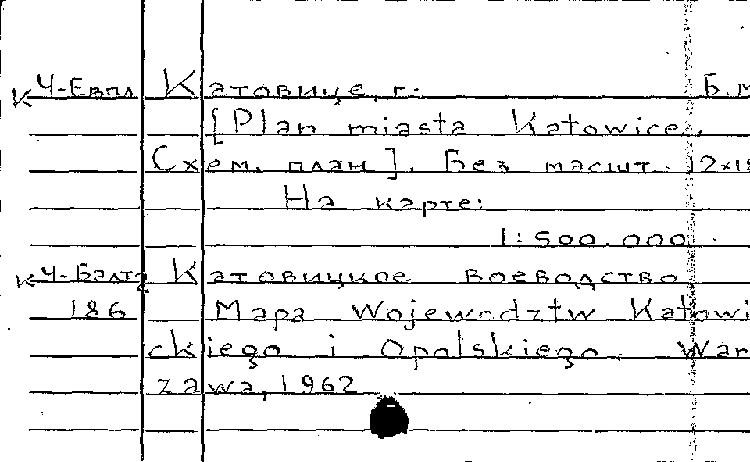 К Ч-Евпл Катовице, г. Б.м
[Plan miasta Katowice.
Схем. план]. Без масшт. 12×18
На карте:
1:500.000.
К Ч-Балтз Катовицкое воеводство
186 Mapa Wojewodztw Katowi
ckiego i Opolskiego. War
zawa, 1962